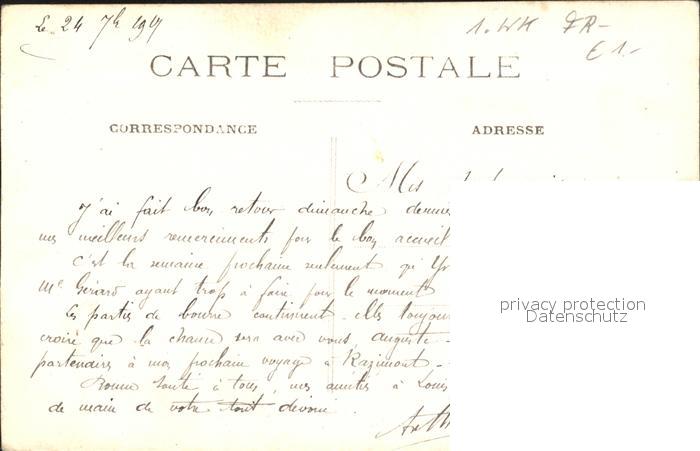 Le 24 7h 1917
1. WK FR-
€ 1.-
CARTE POSTALE
CORRESPONDANCE
ADRESSE
Mes
J'ai fait bon retour dimanche dernier
mes meilleurs remerciments pour le bon accueil
c'est la semaine prochaine seulement qu'
Me Gérard ayant trop à faire pour le moment
Les parties de bourre continuent - elles toujours
croire que la chance sera avec vous auguste -
partenaires à mon prochain voyage à Razimont -
Bonne santé à tous, mes amitiés à Louis
de main de votre tout dévoué
privacy protection
Datenschutz